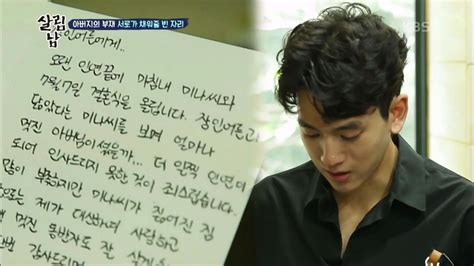 살림남
아버지의 부재 서로가 채워줄 빈 자리
KBS
장인어른에게..
오랜 인연끝에 마침내 미나씨와
7월7일 결혼식을 올립니다. 장인어른과
닮았다는 미나씨를 보며 얼마나
멋진 아버님이셨을까... 더 일찍 인연이
되어 인사드리지 못한것이 죄스럽습니다.
많이 부족하지만 미나씨가 짊어진 짐
제가 대신하여 사랑하고
멋진 동반자로 잘 살게
감사드리며